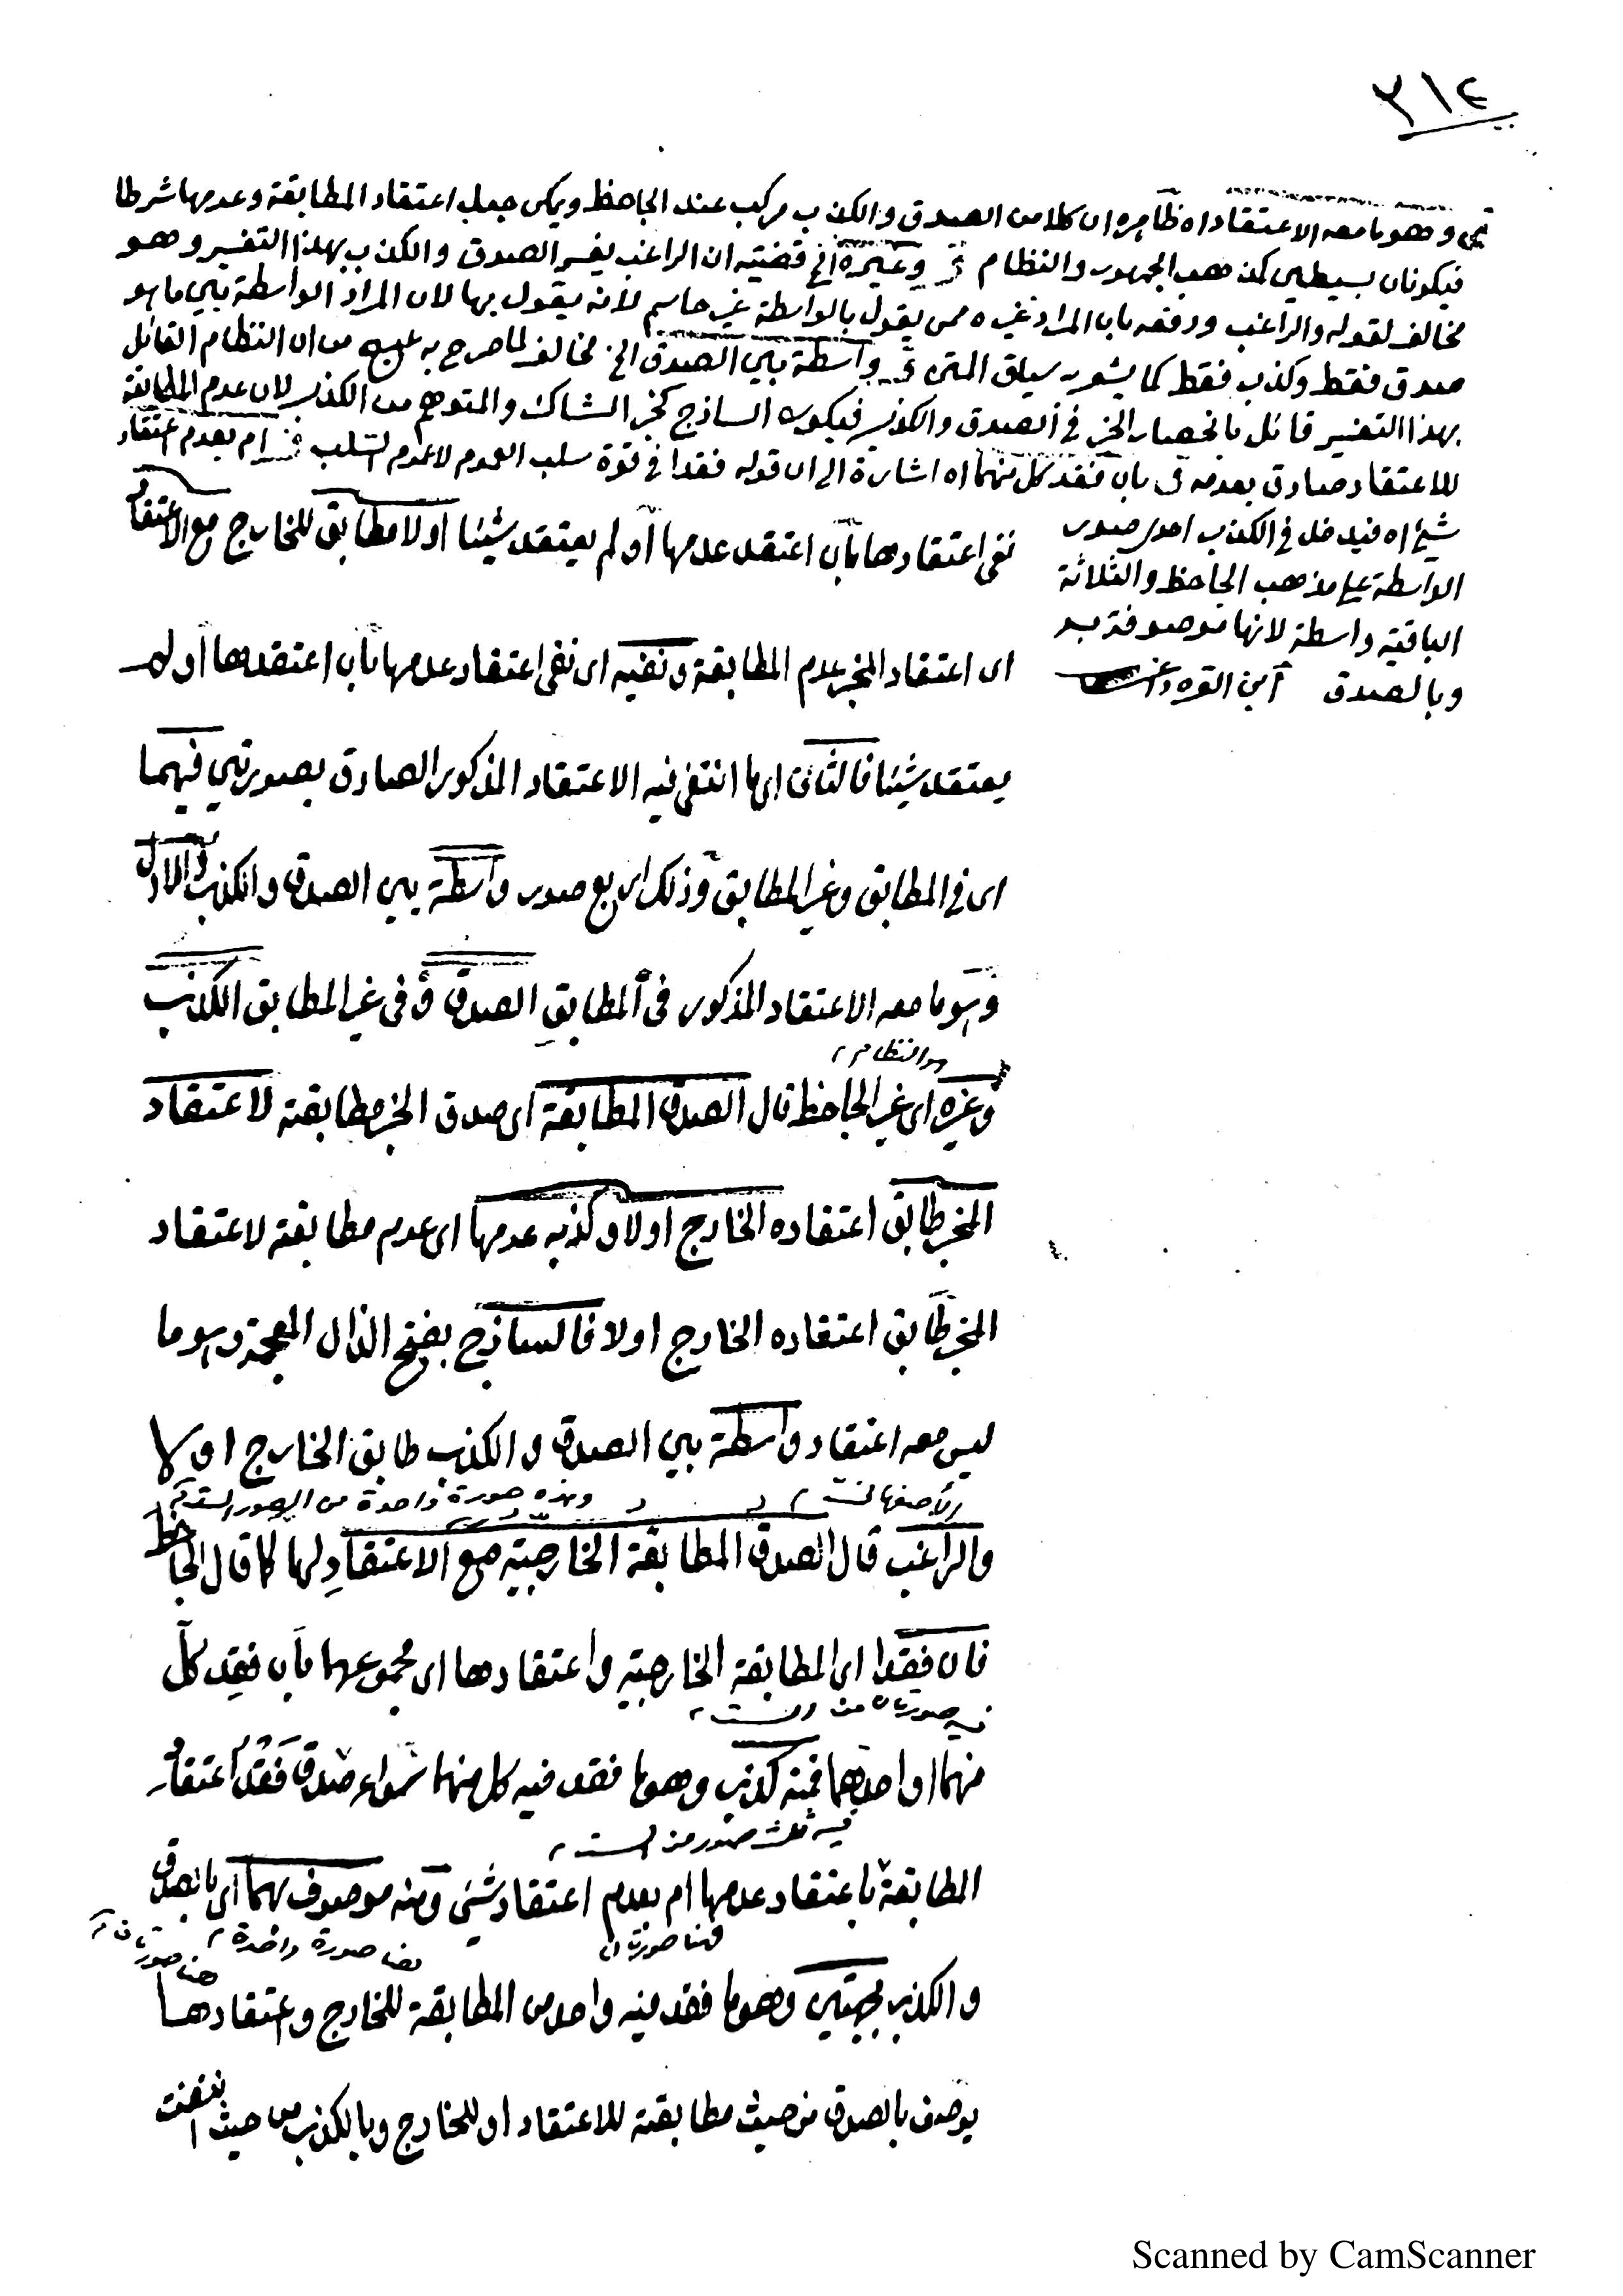 ٣١٤
قى وهو ما معه الاعتقاد اه ظاهره ان كلا من الصدق والكذب مركب عند الجاحظ ويمكن جعل اعتقاد المطابقة وعدمها شرطا
فيكونان بسيطين كمذهب الجمهور والنظام قى وغيره الخ قضيته ان الراغب يفسر الصدق والكذب بهذا التفسير وهو
مخالف لقوله والراغب ودفعه بان المراد غيره ممن يقول بالواسطة غير حاسم لأنه يقول بها لان المراد الواسطة بين ما هو
صدق فقط وكذب فقط كما يشعر به سياق المتن قى واسطة بين الصدق الخ مخالف لما صرح به من ان النظام القائل
بهذا التفسير قائل بانحصار الخبر في الصدق والكذب فيكون الساذج كخبر الشاك والمتوهم من الكذب لان عدم المطابقة
للاعتقاد صادق بعدمه قى بان فقد كل منهما اه اشارة الى ان قوله فقدا في قوة سلب العموم لا عموم السلب ام بعدم اعتقاد
شيئ اه فيدخل في الكذب احدى صور
الواسطة على مذهب الجاحظ والثلاثة
الباقية واسطة لانها موصوفة به
وبالصدق ابن القره داغي
نفى اعتقادها بأن اعتقد عدمها أو لم يعتقد شيئا او لا مطابق للخارج مع الاعتقاد
اى اعتقاد المخبر عدم المطابقة ونفيه اى نفى اعتقاد عدمها بأن اعتقدها أو لم
يعتقد شيئا فالثانى اى ما انتفى فيه الاعتقاد المذكور الصادق بصورتين فيهما
اى فى المطابق وغير المطابق وذلك اربع صور واسطة بين الصدق والكذب والاول
وهو ما معه الاعتقاد المذكور فى المطابق الصدق و فى غير المطابق الكذب
هو النظام
وغيره اى غير الجاحظ قال الصدق المطابقة اى صدق الخبر مطابقته لاعتقاد
المخبر طابق اعتقاده الخارج اولا وكذبه عدمها اى عدم مطابقته لاعتقاد
المخبر طابق اعتقاده الخارج اولا فالساذج بفتح الذال المعجمة وهو ما
ليس معه اعتقاد واسطة بين الصدق والكذب طابق الخارج او لا
الأصفهانى وهذه صورة واحدة من الصور الستة
والراغب قال الصدق المطابقة الخارجية مع الاعتقاد لها كما قال الجاحظ
فان فقدا اى المطابقة الخارجية واعتقادها اى مجموعهما بأن فقد كل
فيه صورتان من الست
منهما او احدهما فمنه كذب وهو ما فقد فيه كل منهما سواء صدق فقد اعتقاد
فيه ثلث صور من الست
المطابقة باعتقاد عدمها ام بعدم اعتقاد شئ ومنه موصوف بهما اى بالصدق
فهنا صورتان هنا صورة واحدة هنا صورتان
والكذب بجهتين وهو ما فقد فيه واحد من المطابقة للخارج واعتقادها
يوصف بالصدق من حيث مطابقته للاعتقاد او للخارج وبالكذب من حيث انتفت
Scanned by CamScanner